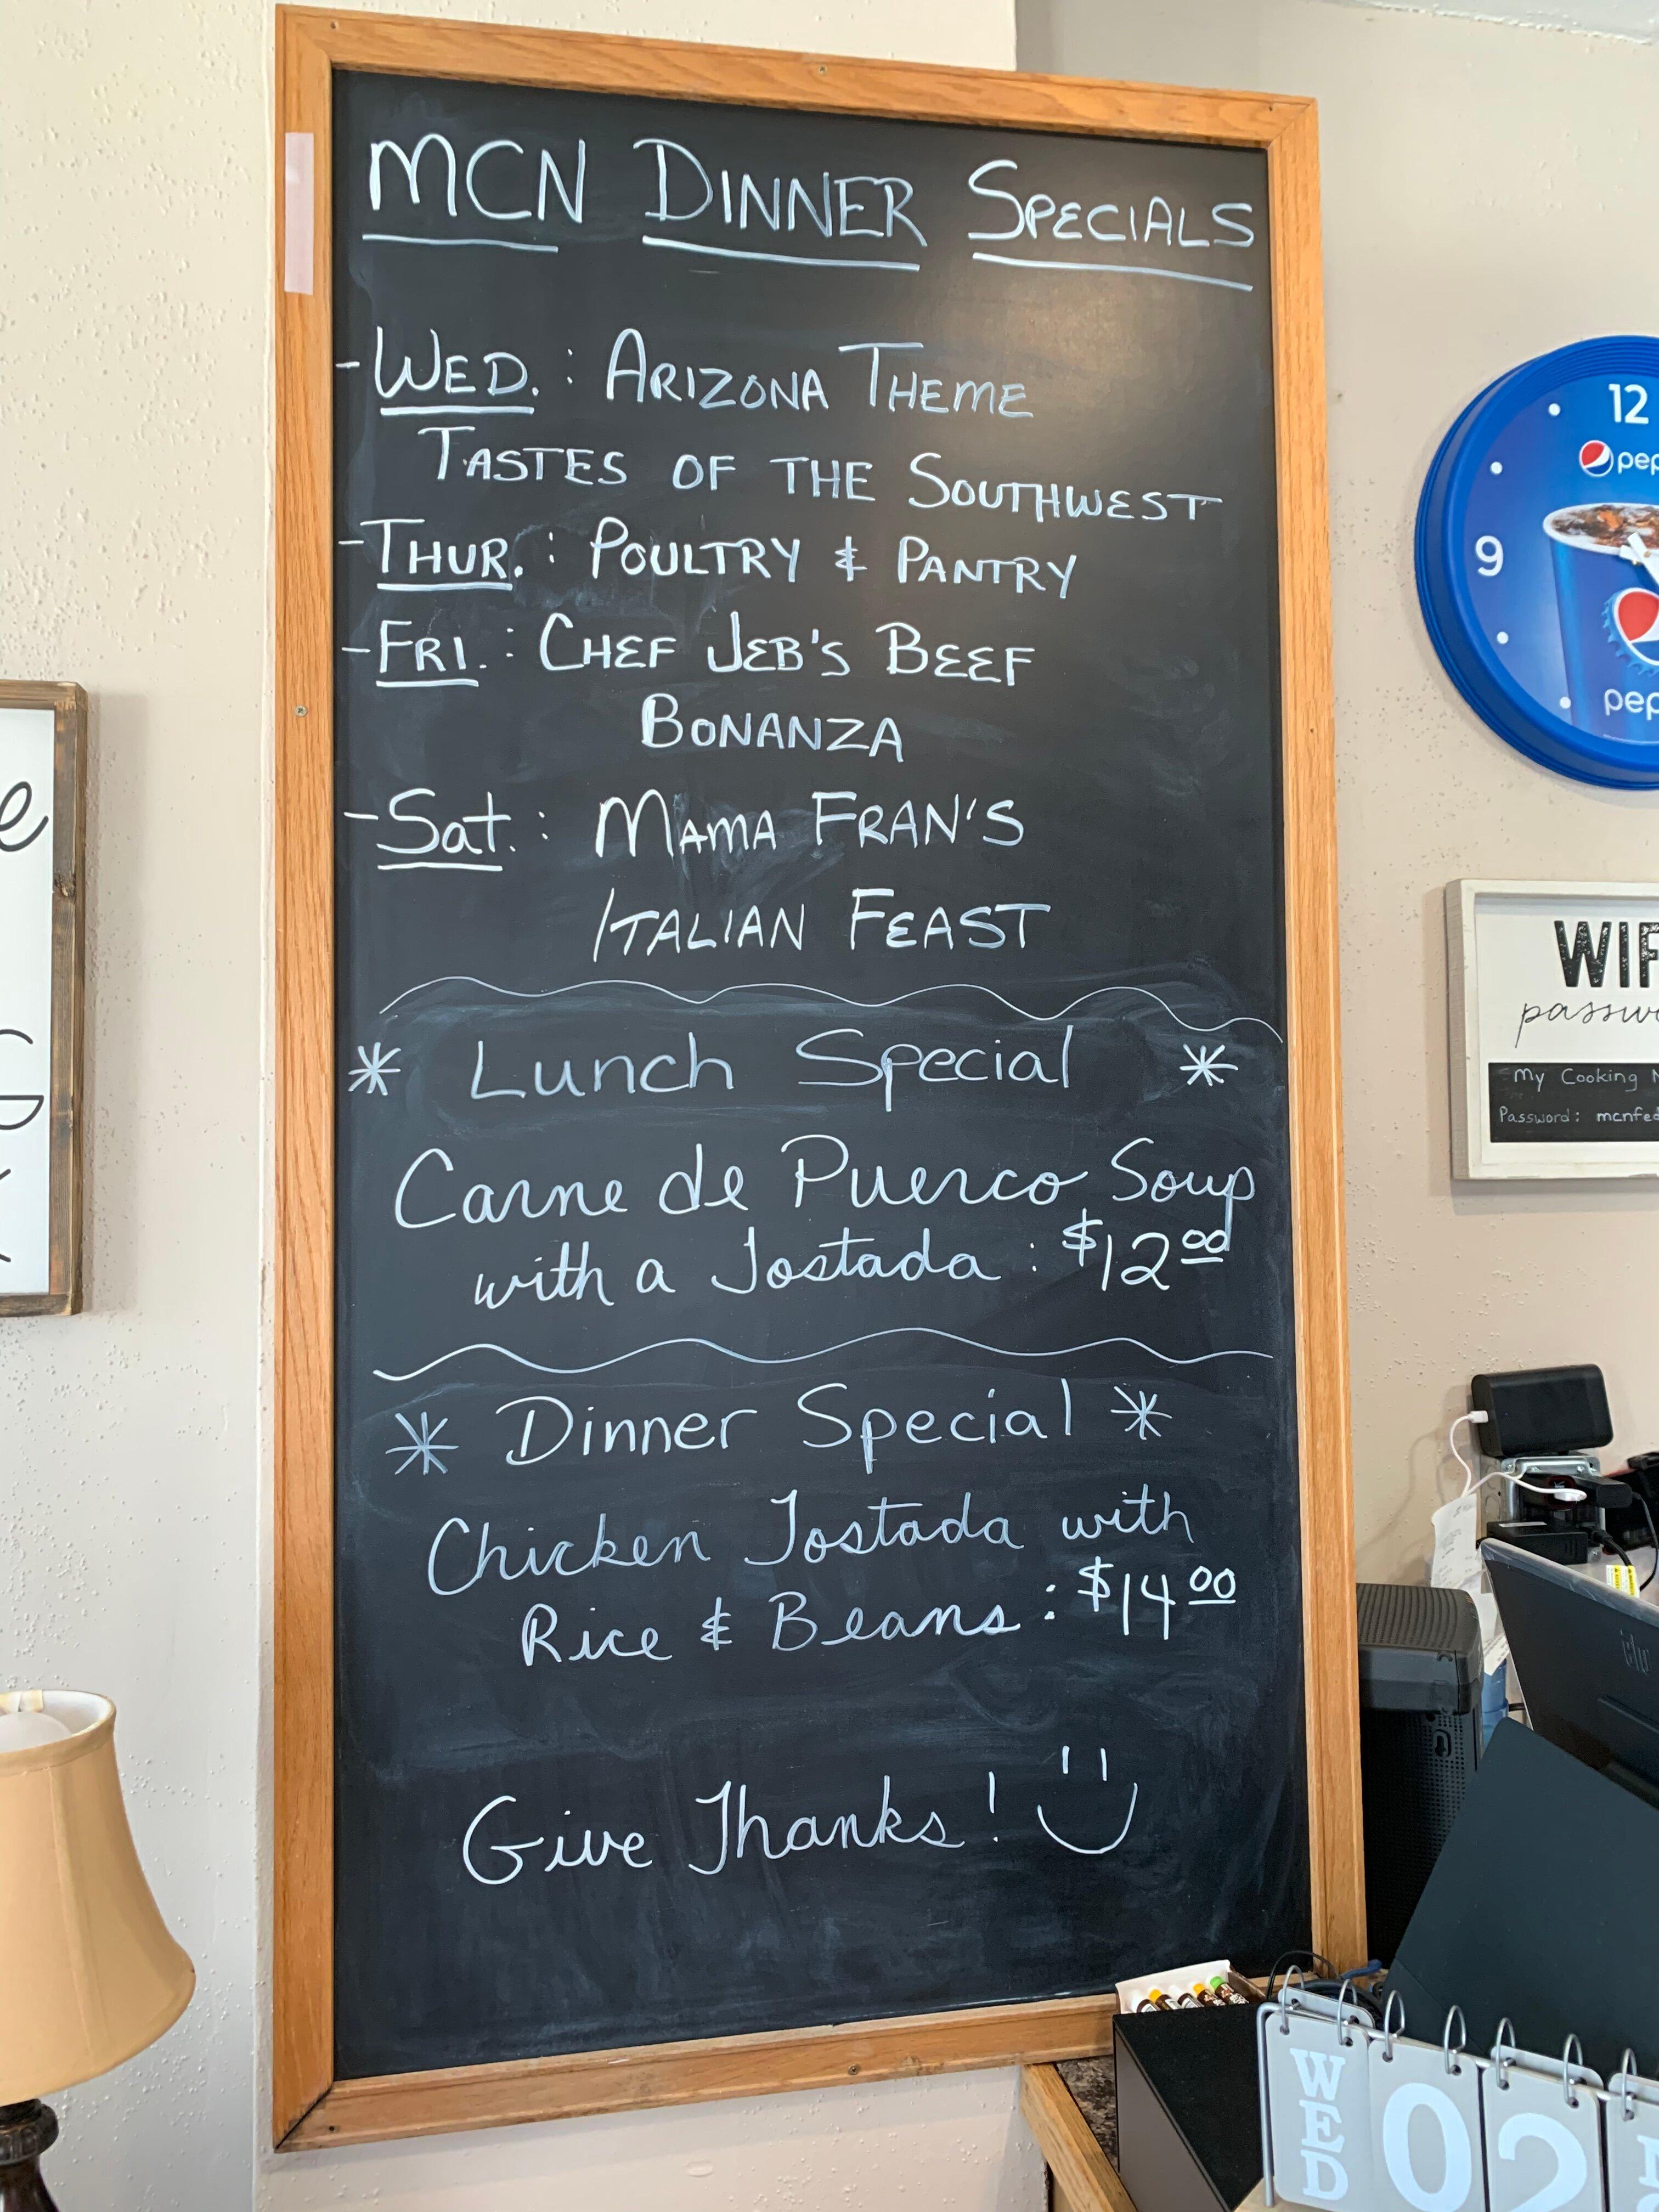 MCN DINNER SPECIALS
- WED. : ARIZONA THEME
TASTES OF THE SOUTHWEST
- THUR. : POULTRY & PANTRY
- FRI. : CHEF JEB'S BEEF
BONANZA
- Sat. : MAMA FRAN'S
ITALIAN FEAST
* Lunch Special *
Carne de Puerco Soup
with a Tostada : $12.00
* Dinner Special *
Chicken Tostada with
Rice & Beans : $14.00
Give Thanks!
12
9
WIF
My Cooking
Password: mcnfed
hp
WED 02